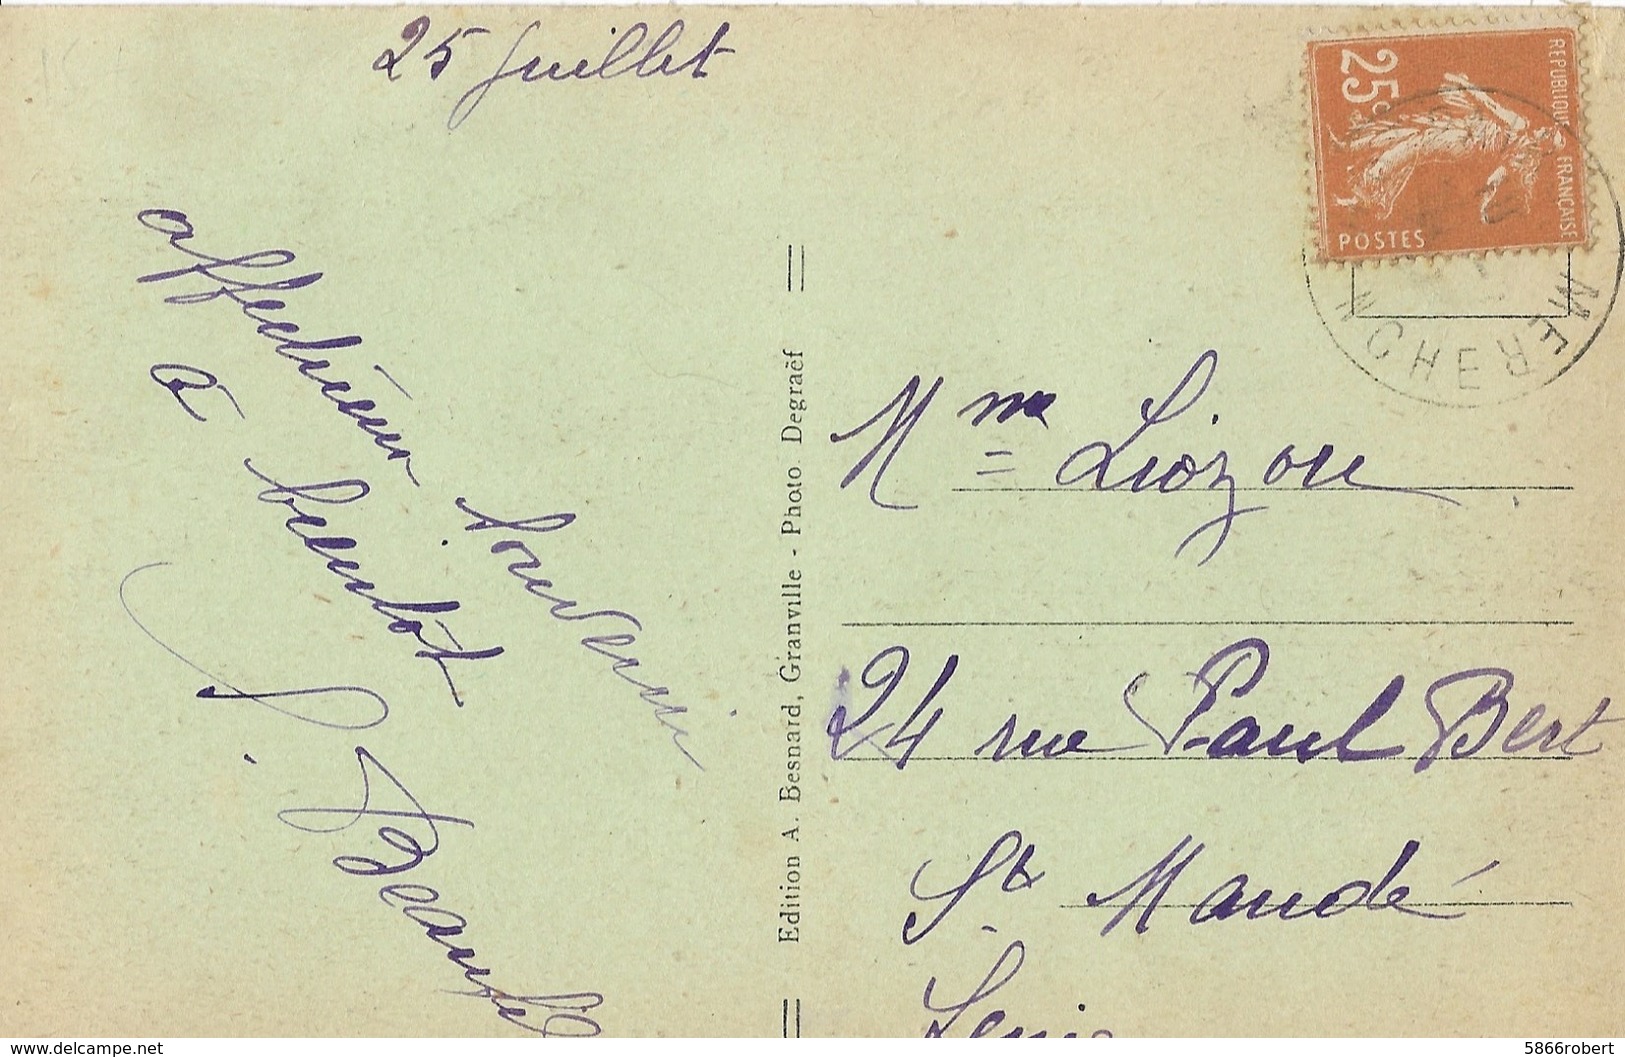 25 Juillet
affectueux souvenir
à bientôt
Edition A. Besnard, Granville - Photo. Degraëf
REPUBLIQUE FRANÇAISE
25c
POSTES
NCHER MER
Mme
24 rue Paul Bert
St Mandé
www.delcampe.net
5866robert